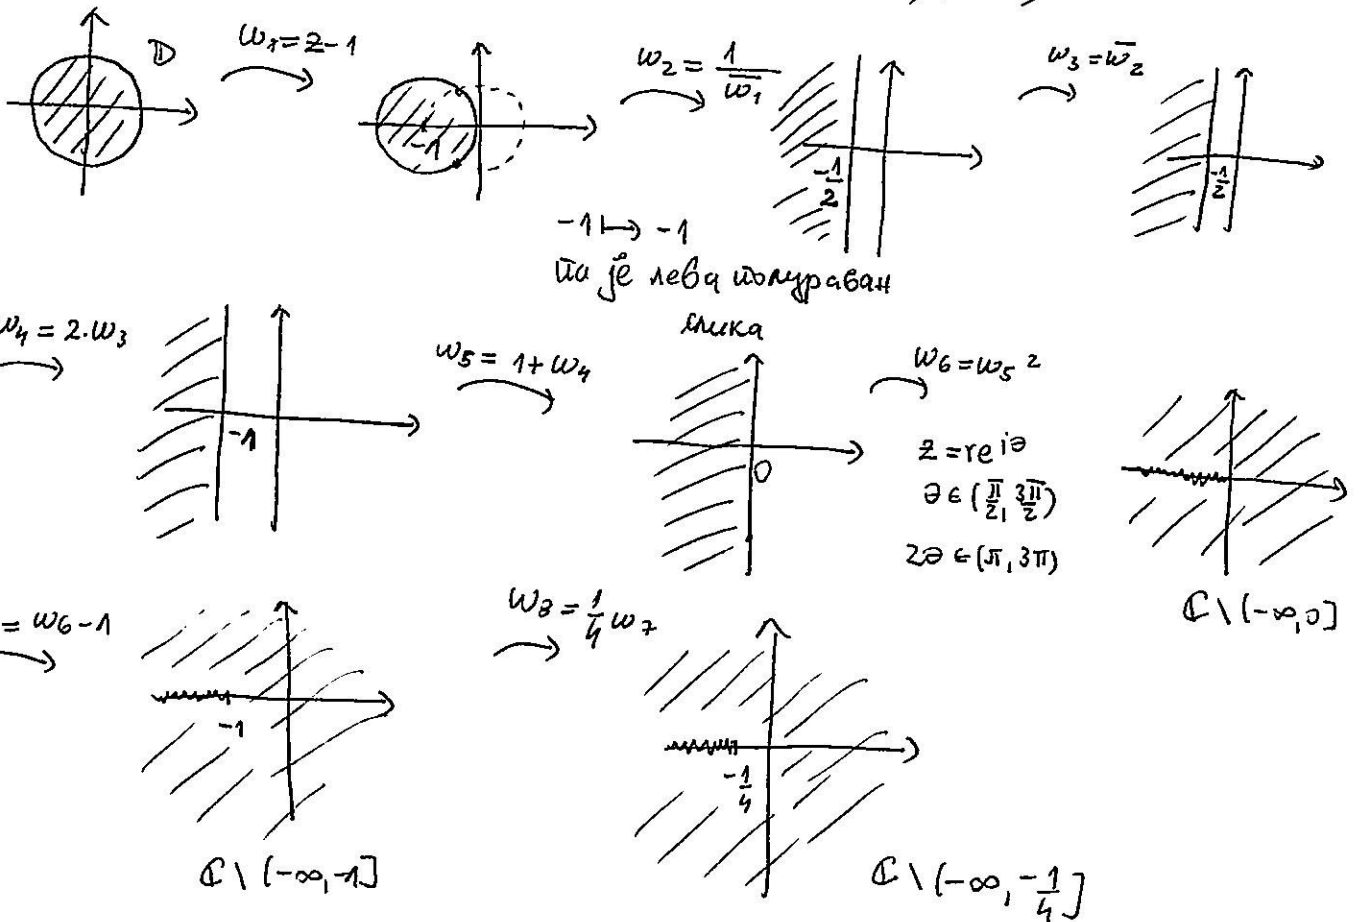 𝔻
w₁ = z - 1
-1
w₂ = 1/w̄₁
-1/2
w₃ = w̄₂
-1/2
-1 ↦ -1
па је лева полураван
слика
w₄ = 2·w₃
-1
w₅ = 1 + w₄
0
w₆ = w₅²
z = re^{iθ}
θ ∈ (π/2, 3π/2)
2θ ∈ (π, 3π)
ℂ \ (-∞, 0]
= w₆ - 1
-1
ℂ \ (-∞, -1]
w₈ = 1/4 w₇
-1/4
ℂ \ (-∞, -1/4]